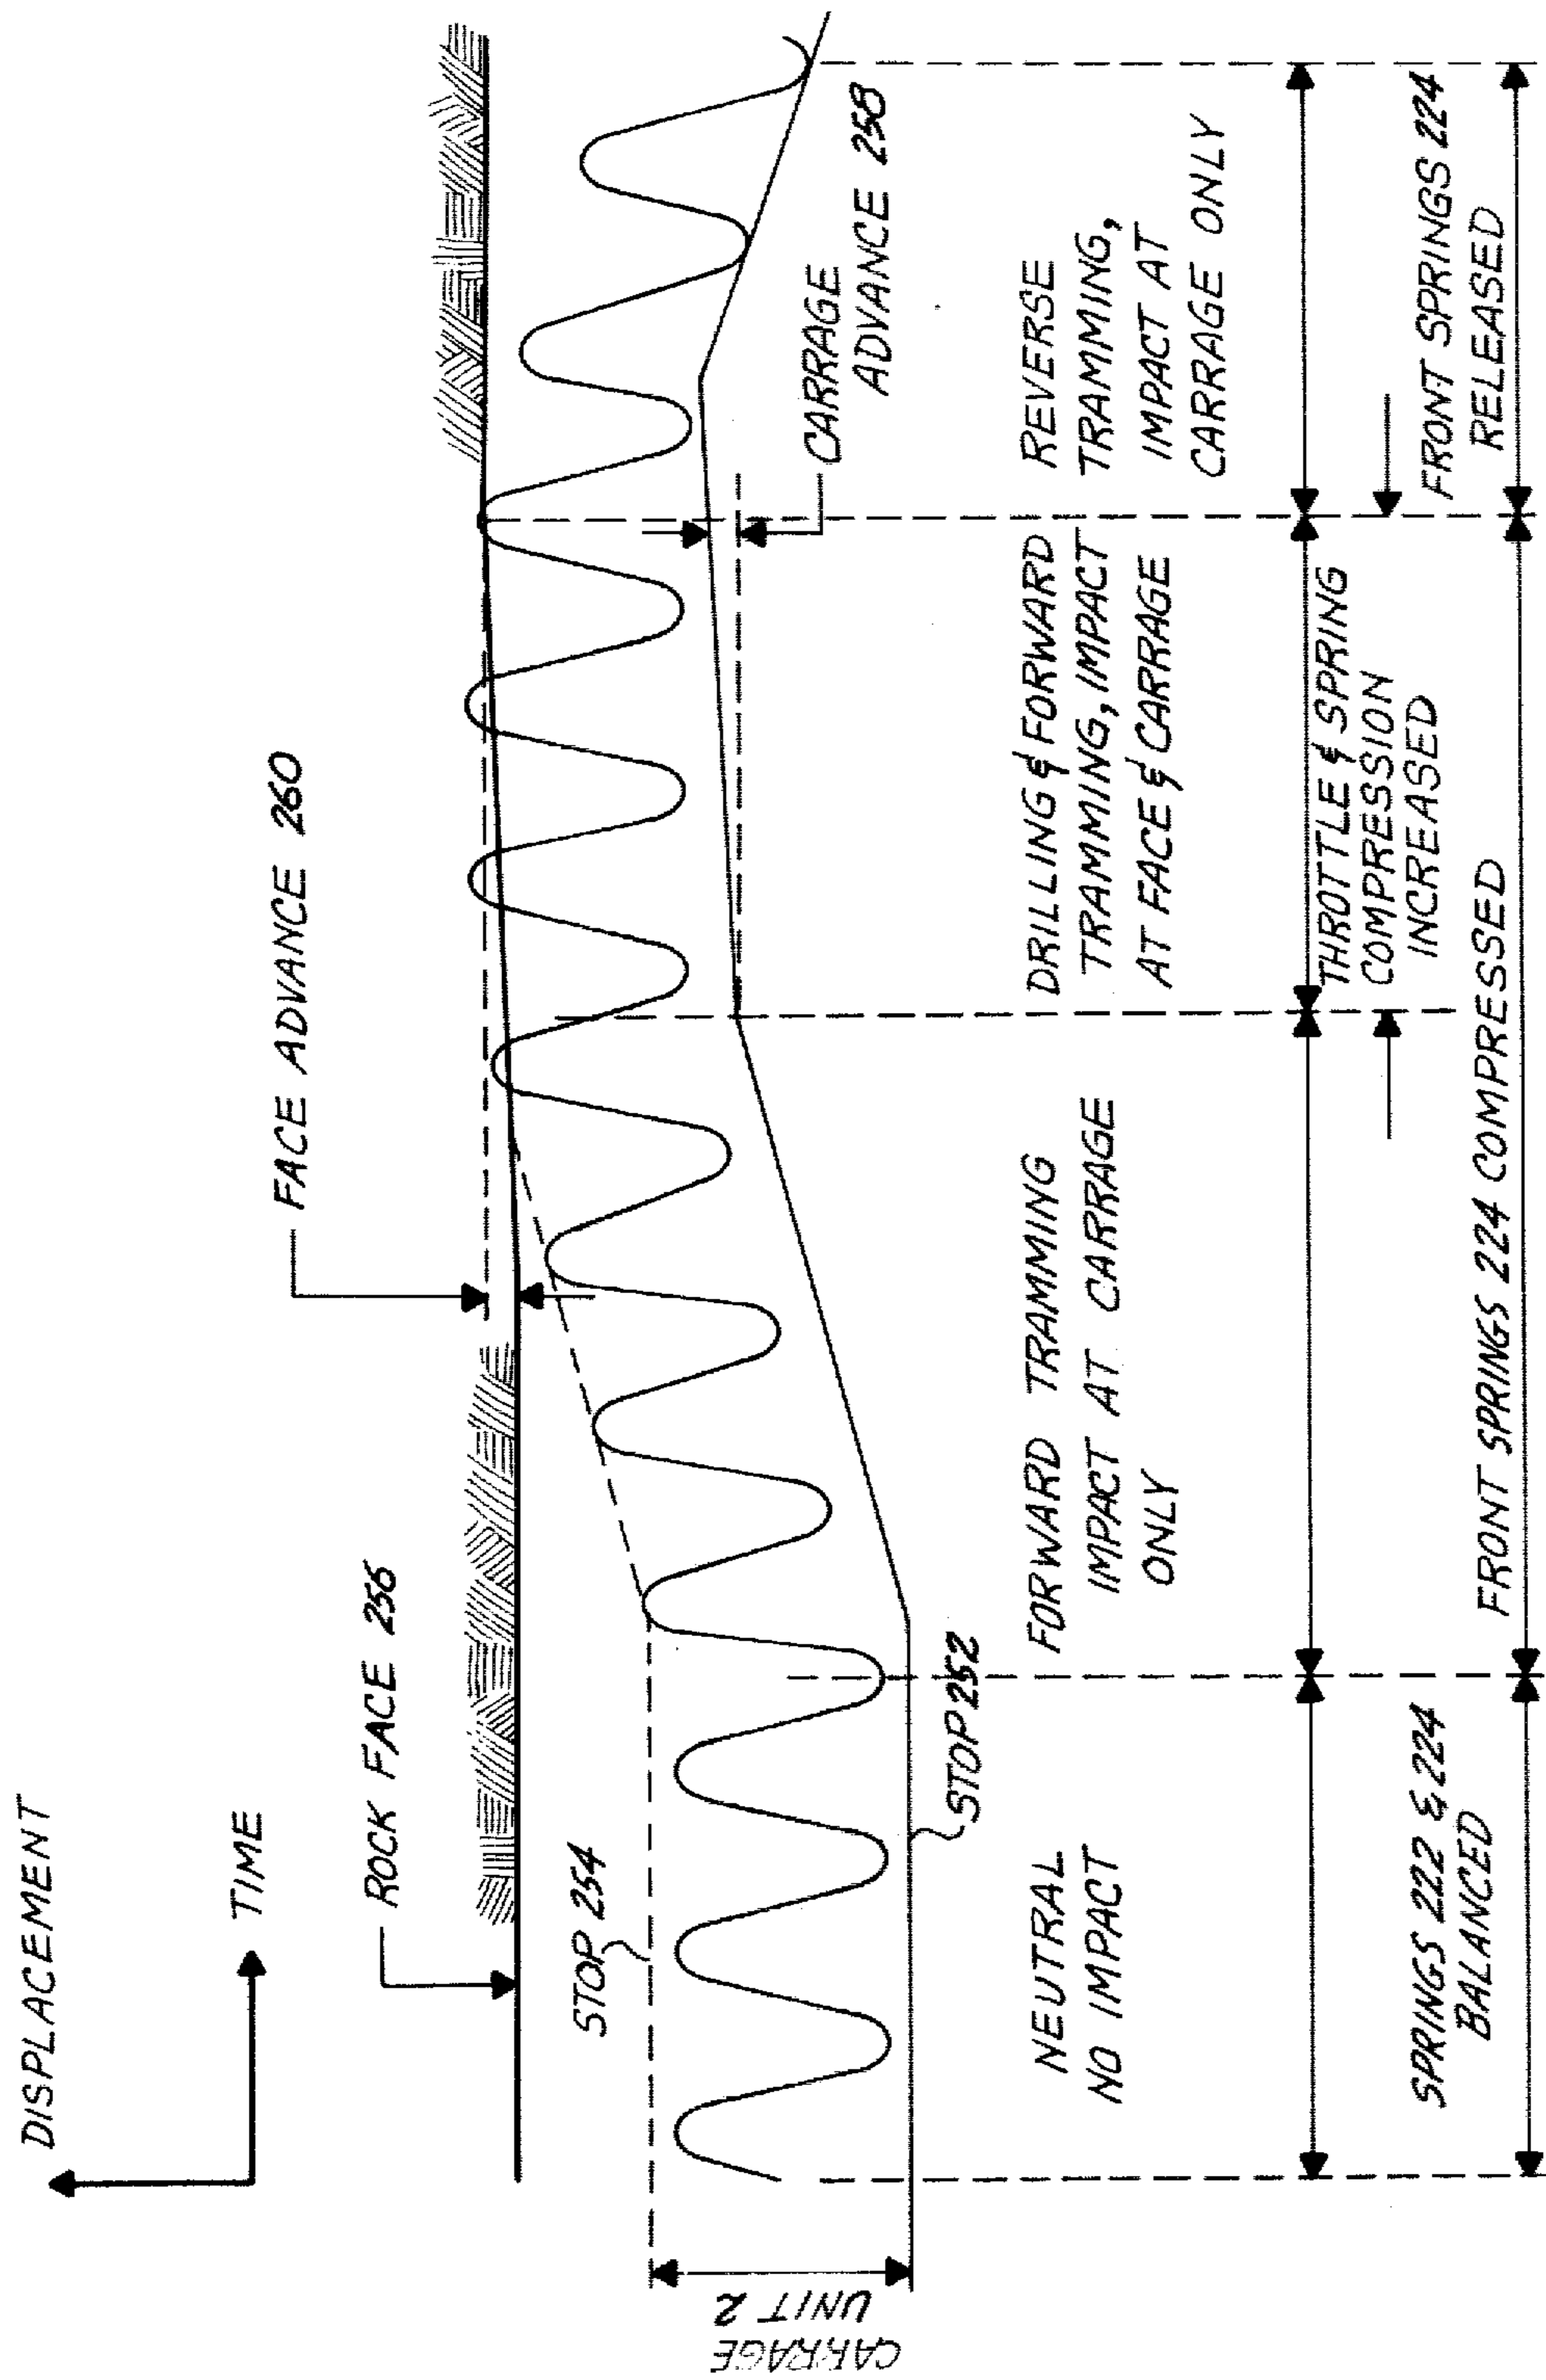 DISPLACEMENT
TIME
ROCK FACE 256
FACE ADVANCE 260
STOP 254
STOP 252
CARRAGE
UNIT 2
CARRAGE
ADVANCE 258
NEUTRAL
NO IMPACT
FORWARD TRAMMING
IMPACT AT CARRAGE
ONLY
DRILLING & FORWARD
TRAMMING, IMPACT
AT FACE & CARRAGE
REVERSE
TRAMMING,
IMPACT AT
CARRAGE ONLY
THROTTLE & SPRING
COMPRESSION
INCREASED
SPRINGS 222 & 224
BALANCED
FRONT SPRINGS 224 COMPRESSED
FRONT SPRINGS 224
RELEASED